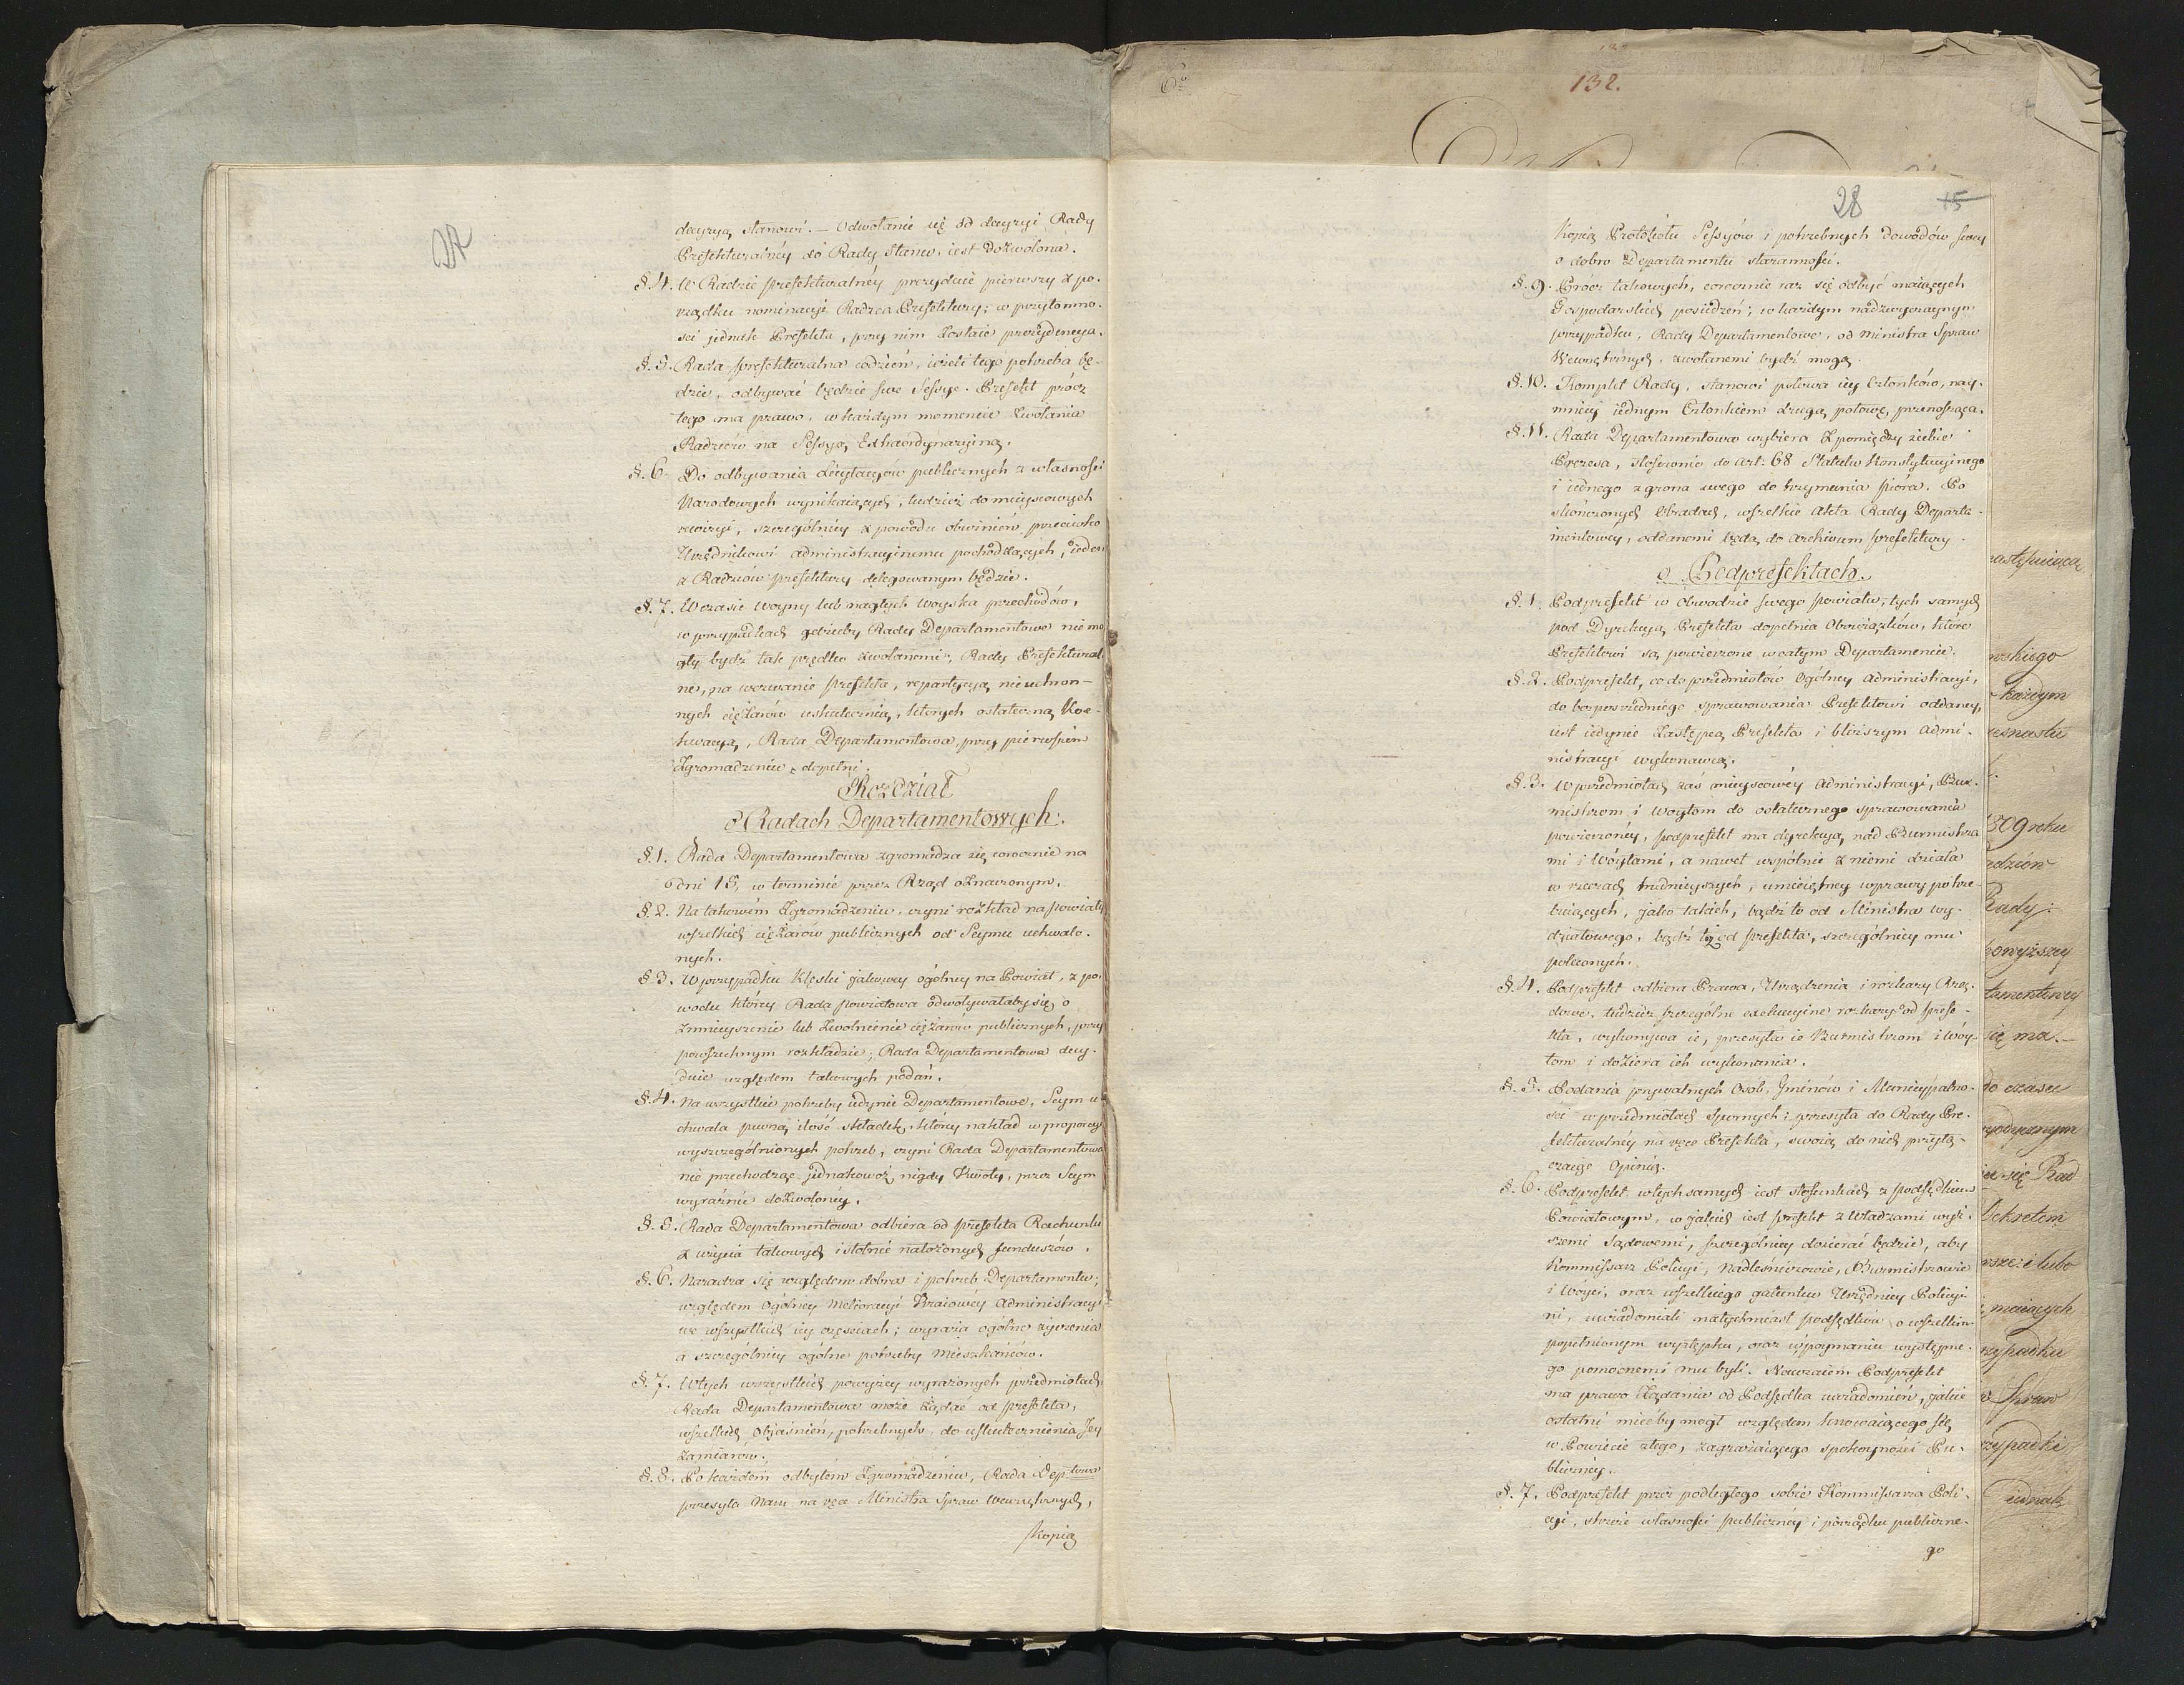 27
decyzyą stanowi. — Odwołanie się od decyzyi Rady
Prefekturalnéy do Rady Stanu, iest dozwolone.
§. 4. W Radzie prefekturalnéy prezyduie pierwszy z po-
rządku nominacyi Radzca Prefektury; w przytomno-
sci jednak Prefekta, przy nim zostaie prezydencya.
§. 5. Rada prefekturalna codzień, ieżeli tego potrzeba bę-
dzie, odbywać będzie swe Sessye. Prefekt prócz
tego ma prawo, w każdym momencie zwołania
Radzców na Sessyą Extraordynaryiną.
§. 6. Do odbywania Licytacyów publicznych z własności
Narodowych wynikaiących, tudzież do mieyscowych
rewizyi, szczególniey z powodu obwinień przeciwko
Urzędnikowi administracyinemu pochodzących, ieden
z Radzców prefektury delegowanym będzie.
§. 7. W czasie woyny lub nagłych woyska przechodów,
w przypadkach gdzieby Rady Departamentowe nie mo
gły bydź tak prędko zwołanemi, Rady Prefektural-
ne, na wezwanie prefekta, repartycyą nieuchron-
nych ciężarów uskutecznią, których ostateczną Koe-
kwacyą, Rada Departamentowa, przy pierwszém
Zgromadzeniu, dopełni.
Rozdział
o Radach Departamentowych.
§. 1. Rada Departamentowa zgromadza się corocznie na
dni 15, w terminie przez Rząd oznaczonym.
§. 2. Na takowém Zgromadzeniu, czyni rozkład na powiaty
wszelkich ciężarów publicznych od Seymu uchwalo-
nych.
§. 3. W przypadku klęski jakowey ogólney na Powiat, z po-
wodu którey Rada powiatowa odwoływałaby się o
zmnieyszenie lub zwolnienie ciężarów publicznych, przy
powszechnym rozkładzie; Rada Departamentowa decy-
duie względem takowych podań.
§. 4. Na wszystkie potrzeby iedynie Departamentowe, Seym u-
chwala pewną ilość składek, którey nakład w proporcyi
wyszczególnionych potrzeb, czyni Rada Departamentowa
nie przechodząc jednakowoż nigdy Kwoty, przez Seym
wyraźnie dozwoloney.
§. 5. Rada Departamentowa odbiera od prefekta Rachunki
z użycia takowych istotnie nałożonych funduszów.
§. 6. Naradza się względem dobra i potrzeb Departamentu;
względem ogólney Melioracyi Kraiowéy administracyi
we wszystkich iey częściach; wyraża ogólne życzenia
a szczególniey ogólne potrzeby Mieszkańców.
§. 7. W tych wszystkich powyżey wyrażonych przedmiotach,
Rada Departamentowa może żądać od prefekta,
wszelkich objaśnień, potrzebnych do uskutecznienia Jey
zamiarów.
§. 8. Po każdém odbytém Zgromadzeniu, Rada Deptowa
przesyła Nam na ręce Ministra Spraw Wewnętrznych,
Kopią
6º
132.
28
15
Kopią Protokułu Sessyów i potrzebnych dowodów swey
o dobro Departamentu staranności.
§. 9. Prócz takowych, corocznie raz się odbyć maiących
Gospodarskich posiedzeń; w każdym nadzwyczaynym
przypadku, Rady Departamentowe, od Ministra Spraw
Wewnętrznych, zwołanemi bydź mogą.
§. 10. Komplet Rady, stanowi połowa iey Członków, nay-
mniey iednym Członkiem drugą połowę przenosząca.
§. 11. Rada Departamentowa wybiera z pomiędzy siebie
Prezesa, stosownie do art: 68 Statutu Konstytucyinego
i iednego z grona swego do trzymania pióra. Po
skończonych obradach, wszelkie Akta Rady Departa-
mentowey, oddanemi będą do archivum prefektury.
o Podprefektach.
§. 1. Podprefekt w Obwodzie swego powiatu, tych samych
pod Dyrekcyą Prefekta dopełnia Obowiązków, które
Prefektowi są powierzone w całym Departamencie.
§. 2. Podprefekt, co do przedmiotów Ogólney administracyi,
do bezpośredniego sprawowania Prefektowi oddaney,
iest iedynie Zastępcą Prefekta i bliższym admi-
nistracyi wykonawcą.
§. 3. W przedmiotach zaś mieyscowéy administracyi, Bur-
mistrzom i Woytom do ostatecznego sprawowania
powierzoney, podprefekt ma dyrekcyą nad Burmistrza
mi i Wóytami, a nawet wspólnie z niemi działa
w rzeczach trudnieyszych, umieiętney wprawy potrze-
buiących, jako takich, bądź to od Ministra wy-
działowego, bądź też od prefekta, szczególniey mu
poleconych.
§. 4. Podprefekt odbiera Prawa, Urządzenia i rozkazy Rzą-
dowe, tudzież szczególne exekucyine rozkazy od Prefe-
kta, wykonywa ie, przesyła ie Burmistrzom i Wóy-
tom i doziera ich wykonania.
§. 5. Podania prywatnych Osob, Gminów i Municypalno-
ści w przedmiotach spornych i przesyła do Rady Pre-
fekturalney na ręce Prefekta, swoią do nich przyłą-
czaiąc Opinią.
§. 6. Podprefekt w tych samych iest stosunkach z podsędkiem
Powiatowym, w jakich iest prefekt z Władzami wyż-
szemi Sądowemi, szczególniey dozierać będzie, aby
Kommissarz Policyi, Nadleśniczowie, Burmistrzowie
i Wóyci, oraz wszelkiego gatunku Urzędnicy Policyi-
ni, uwiadomiali natychmiast podsędków o wszelkim
popełnionym występku, oraz w poymaniu występne-
go pomocnemi mu byli. Nawzaiem Podprefekt
ma prawo Żądania od Podsędka uwiadomień, jakie
ostatni miećby mogł względem knowaiącego się
w Powiecie złego, zagrażaiącego spokoyności Pu-
bliczney.
§. 7. Podprefekt przez podległego sobie Kommissarza Poli-
cyi, strzeże własności publiczney i porządku publiczne-
go
następuiącą
wskiego
każdym
809 roku
Rady:
się ma. —
do czasu
się Rad
Dekretem
maiących
Spraw
iednak